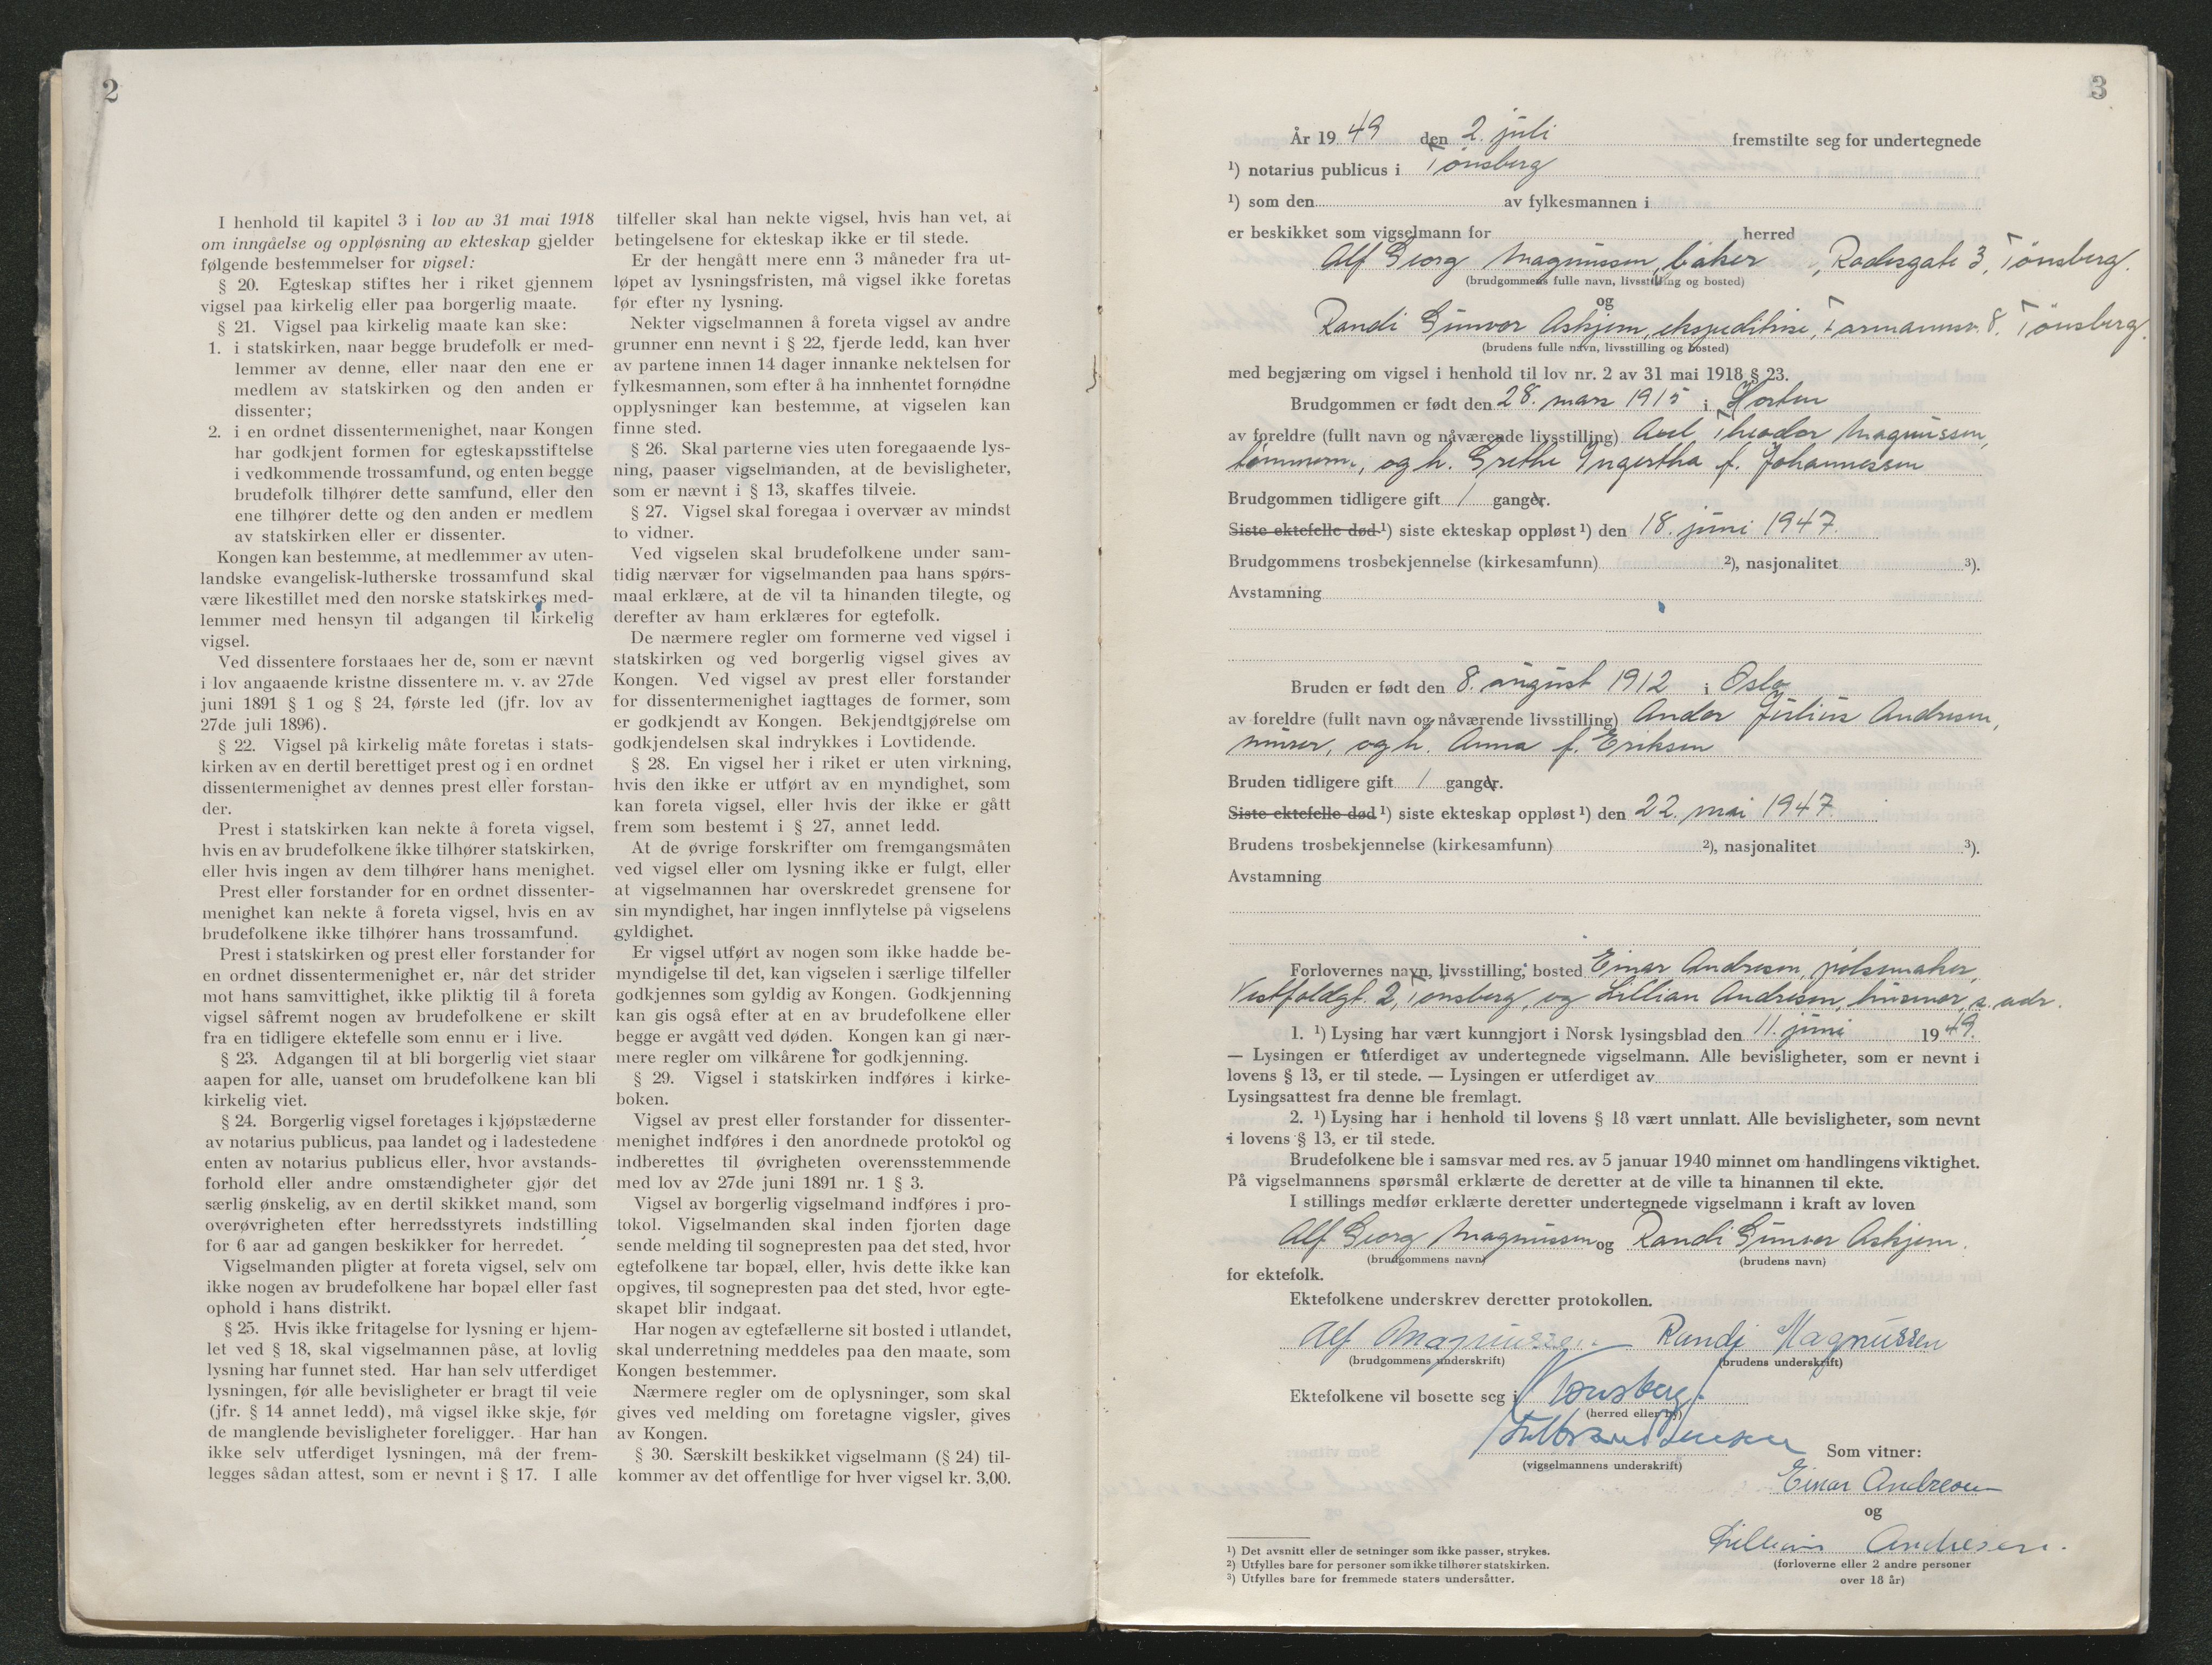 2
I henhold til kapitel 3 i lov av 31 mai 1918
om inngåelse og oppløsning av ekteskap gjelder
følgende bestemmelser for vigsel:
§ 20. Egteskap stiftes her i riket gjennem
vigsel paa kirkelig eller paa borgerlig maate.
§ 21. Vigsel paa kirkelig maate kan ske:
1. i statskirken, naar begge brudefolk er med-
lemmer av denne, eller naar den ene er
medlem av statskirken og den anden er
dissenter;
2. i en ordnet dissentermenighet, naar Kongen
har godkjent formen for egteskapsstiftelse
i vedkommende trossamfund, og enten begge
brudefolk tilhører dette samfund, eller den
ene tilhører dette og den anden er medlem
av statskirken eller er dissenter.
Kongen kan bestemme, at medlemmer av uten-
landske evangelisk-lutherske trossamfund skal
være likestillet med den norske statskirkes med-
lemmer med hensyn til adgangen til kirkelig
vigsel.
Ved dissentere forstaaes her de, som er nævnt
i lov angaaende kristne dissentere m. v. av 27de
juni 1891 § 1 og § 24, første led (jfr. lov av
27de juli 1896).
§ 22. Vigsel på kirkelig måte foretas i stats-
kirken av en dertil berettiget prest og i en ordnet
dissentermenighet av dennes prest eller forstan-
der.
Prest i statskirken kan nekte å foreta vigsel,
hvis en av brudefolkene ikke tilhører statskirken,
eller hvis ingen av dem tilhører hans menighet.
Prest eller forstander for en ordnet dissenter-
menighet kan nekte å foreta vigsel, hvis en av
brudefolkene ikke tilhører hans trossamfund.
Prest i statskirken og prest eller forstander for
en ordnet dissentermenighet er, når det strider
mot hans samvittighet, ikke pliktig til å foreta
vigsel såfremt nogen av brudefolkene er skilt
fra en tidligere ektefelle som ennu er i live.
§ 23. Adgangen til at bli borgerlig viet staar
aapen for alle, uanset om brudefolkene kan bli
kirkelig viet.
§ 24. Borgerlig vigsel foretages i kjøpstæderne
av notarius publicus, paa landet og i ladestedene
enten av notarius publicus eller, hvor avstands-
forhold eller andre omstændigheter gjør det
særlig ønskelig, av en dertil skikket mand, som
overøvrigheten efter herredsstyrets indstilling
for 6 aar ad gangen beskikker for herredet.
Vigselmanden pligter at foreta vigsel, selv om
ikke nogen av brudefolkene har bopæl eller fast
ophold i hans distrikt.
§ 25. Hvis ikke fritagelse for lysning er hjem-
let ved § 18, skal vigselmannen påse, at lovlig
lysning har funnet sted. Har han selv utferdiget
lysningen, før alle bevisligheter er bragt til veie
(jfr. § 14 annet ledd), må vigsel ikke skje, før
de manglende bevisligheter foreligger. Har han
ikke selv utferdiget lysningen, må der frem-
legges sådan attest, som er nevnt i § 17. I alle
tilfeller skal han nekte vigsel, hvis han vet, at
betingelsene for ekteskap ikke er til stede.
Er der hengått mere enn 3 måneder fra ut-
løpet av lysningsfristen, må vigsel ikke foretas
før efter ny lysning.
Nekter vigselmannen å foreta vigsel av andre
grunner enn nevnt i § 22, fjerde ledd, kan hver
av partene innen 14 dager innanke nektelsen for
fylkesmannen, som efter å ha innhentet fornødne
opplysninger kan bestemme, at vigselen kan
finne sted.
§ 26. Skal parterne vies uten foregaaende lys-
ning, paaser vigselmanden, at de bevisligheter,
som er nævnt i § 13, skaffes tilveie.
§ 27. Vigsel skal foregaa i overvær av mindst
to vidner.
Ved vigselen skal brudefolkene under sam-
tidig nærvær for vigselmanden paa hans spørs-
maal erklære, at de vil ta hinanden tilegte, og
derefter av ham erklæres for egtefolk.
De nærmere regler om formerne ved vigsel i
statskirken og ved borgerlig vigsel gives av
Kongen. Ved vigsel av prest eller forstander
for dissentermenighet iagttages de former, som
er godkjendt av Kongen. Bekjendtgjørelse om
godkjendelsen skal indrykkes i Lovtidende.
§ 28. En vigsel her i riket er uten virkning,
hvis den ikke er utført av en myndighet, som
kan foreta vigsel, eller hvis der ikke er gått
frem som bestemt i § 27, annet ledd.
At de øvrige forskrifter om fremgangsmåten
ved vigsel eller om lysning ikke er fulgt, eller
at vigselmannen har overskredet grensene for
sin myndighet, har ingen innflytelse på vigselens
gyldighet.
Er vigsel utført av nogen som ikke hadde be-
myndigelse til det, kan vigselen i særlige tilfeller
godkjennes som gyldig av Kongen. Godkjenning
kan gis også efter at en av brudefolkene eller
begge er avgått ved døden. Kongen kan gi nær-
mere regler om vilkårene for godkjenning.
§ 29. Vigsel i statskirken indføres i kirke-
boken.
Vigsel av prest eller forstander for dissenter-
menighet indføres i den anordnede protokol og
indberettes til øvrigheten overensstemmende
med lov av 27de juni 1891 nr. 1 § 3.
Vigsel av borgerlig vigselmand indføres i pro-
tokol. Vigselmanden skal inden fjorten dage
sende melding til sognepresten paa det sted, hvor
egtefolkene tar bopæl, eller, hvis dette ikke kan
opgives, til sognepresten paa det sted, hvor egte-
skapet blir indgaat.
Har nogen av egtefællerne sit bosted i utlandet,
skal underretning meddeles paa den maate, som
Kongen bestemmer.
Nærmere regler om de oplysninger, som skal
gives ved melding om foretagne vigsler, gives
av Kongen.
§ 30. Særskilt beskikket vigselmann (§ 24) til-
kommer av det offentlige for hver vigsel kr. 3,00.
3
År 19 49 den 2. juli fremstilte seg for undertegnede
¹) notarius publicus i Tønsberg
¹) som den av fylkesmannen i
er beskikket som vigselmann for herred
Alf Georg Magnussen, baker, Rådesgate 3, Tønsberg.
(brudgommens fulle navn, livsstilling og bosted)
og
Randi Gunvor Askjem, ekspeditrise, Farmannsv. 8. Tønsberg.
(brudens fulle navn, livsstilling og bosted)
med begjæring om vigsel i henhold til lov nr. 2 av 31 mai 1918 § 23.
Brudgommen er født den 28. mars 1915 i Horten
av foreldre (fullt navn og nåværende livsstilling) Axel Theodor Magnussen,
tømmerm., og h. Grethe Ingertha f. Johannessen
Brudgommen tidligere gift 1 ganger.
Siste ektefelle død ¹) siste ekteskap oppløst ¹) den 18. juni 1947.
Brudgommens trosbekjennelse (kirkesamfunn) ²), nasjonalitet ³).
Avstamning
Bruden er født den 8. august 1912 i Oslo
av foreldre (fullt navn og nåværende livsstilling) Andor Julius Andresen,
murer, og h. Anna f. Eriksen
Bruden tidligere gift 1 ganger.
Siste ektefelle død ¹) siste ekteskap oppløst ¹) den 22. mai 1947.
Brudens trosbekjennelse (kirkesamfunn) ²), nasjonalitet ³).
Avstamning
Forlovernes navn, livsstilling, bosted Einar Andresen, pølsemaker,
Vestfoldgt. 2, Tønsberg, og Lillian Andresen, husmor, s. adr.
1. ¹) Lysing har vært kunngjort i Norsk lysingsblad den 11. juni 19 49.
— Lysingen er utferdiget av undertegnede vigselmann. Alle bevisligheter, som er nevnt i
lovens § 13, er til stede. — Lysingen er utferdiget av
Lysingsattest fra denne ble fremlagt.
2. ¹) Lysing har i henhold til lovens § 18 vært unnlatt. Alle bevisligheter, som nevnt
i lovens § 13, er til stede.
Brudefolkene ble i samsvar med res. av 5 januar 1940 minnet om handlingens viktighet.
På vigselmannens spørsmål erklærte de deretter at de ville ta hinannen til ekte.
I stillings medfør erklærte deretter undertegnede vigselmann i kraft av loven
Alf Georg Magnussen og Randi Gunvor Askjem.
(brudgommens navn) (brudens navn)
for ektefolk.
Ektefolkene underskrev deretter protokollen.
Alf Magnussen Randi Magnussen
(brudgommens underskrift) (brudens underskrift)
Ektefolkene vil bosette seg i Tønsberg.
(herred eller by)
Som vitner:
(vigselmannens underskrift)
Einar Andresen
og
Lillian Andresen.
(forloverne eller 2 andre personer
over 18 år)
¹) Det avsnitt eller de setninger som ikke passer, strykes.
²) Utfylles bare for personer som ikke tilhører statskirken.
³) Utfylles bare for fremmede staters undersåtter.